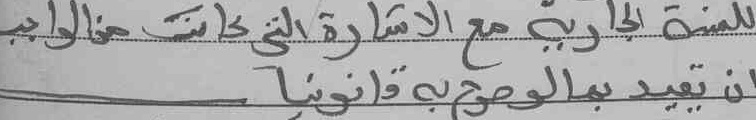 للسنة الجارية مع الاشارة التي كانت من الواجب
ان تقيد بما لو صرح به قانونيا